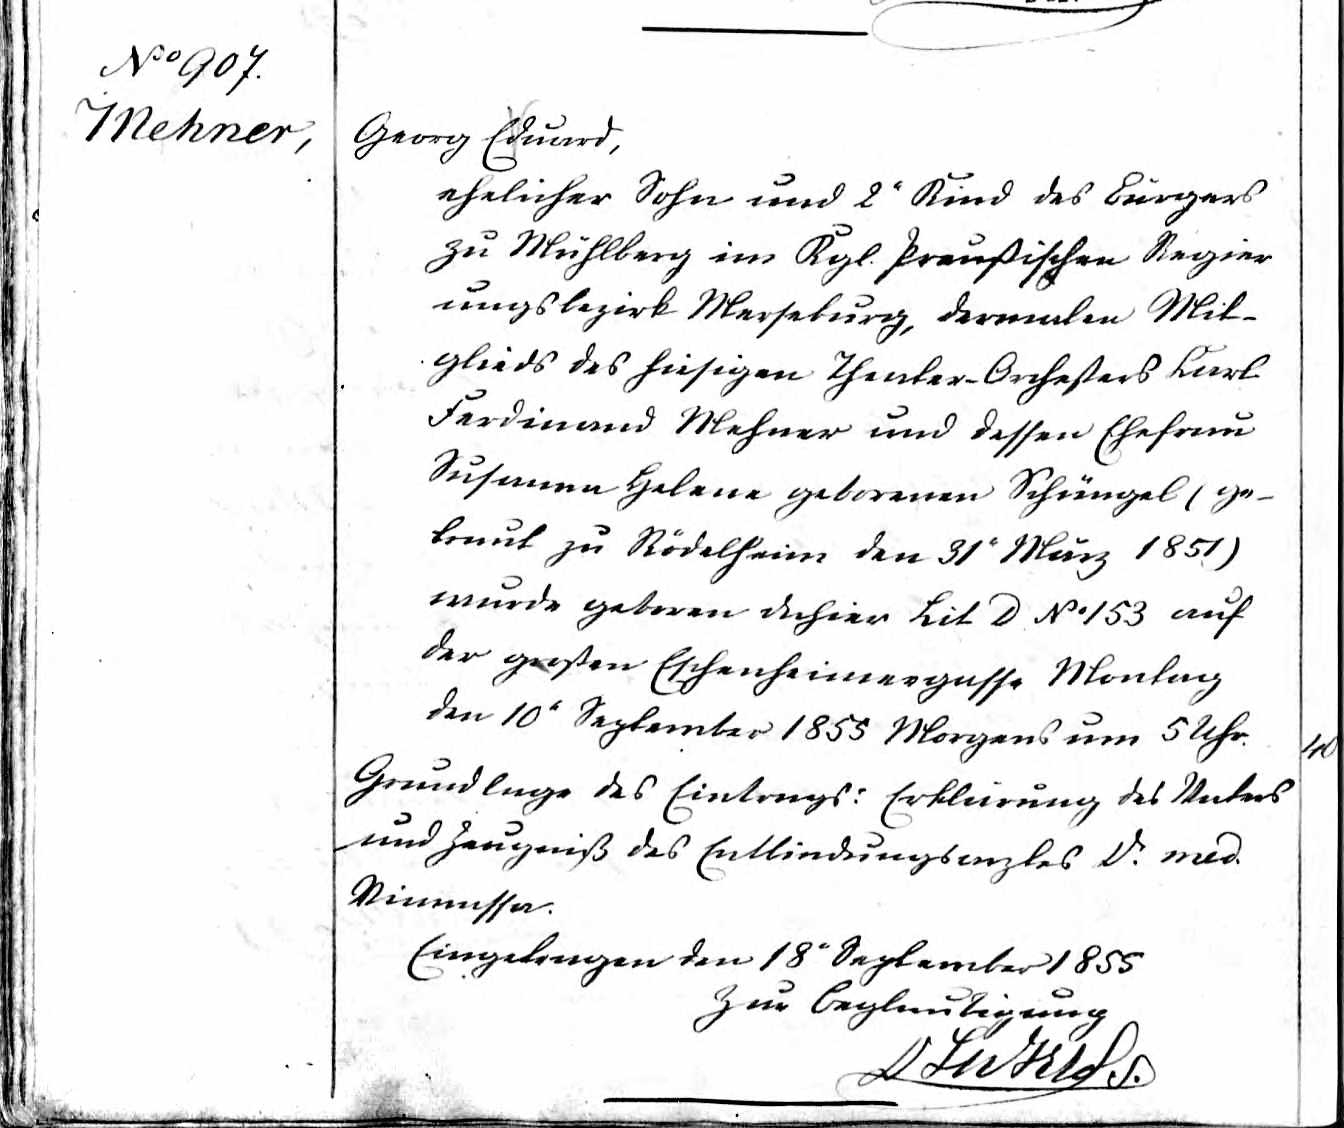 No 907.
Mehner,
Georg Eduard,
ehelicher Sohn und 2s Kind des Bürgers
zu Mühlberg im Kgl. Preußischen Regier
ungsbezirk Merseburg, dermalen Mit-
glieds des hiesigen Theater-Orchesters Karl
Ferdinand Mehner und dessen Ehefrau
Susanna Helene geborenen Schüngel (ge-
traut zu Rödelheim den 31n März 1851)
wurde geboren dahier Lit D No 153 auf
der großen Eschenheimergasse Montag
den 10n September 1855 Morgens um 5 Uhr.
Grundlage des Eintrags: Erklärung des Vaters
und Zeugniß des Entbindungsarztes Dr. med.
Eingetragen den 18n September 1855
Zur Beglaubigung